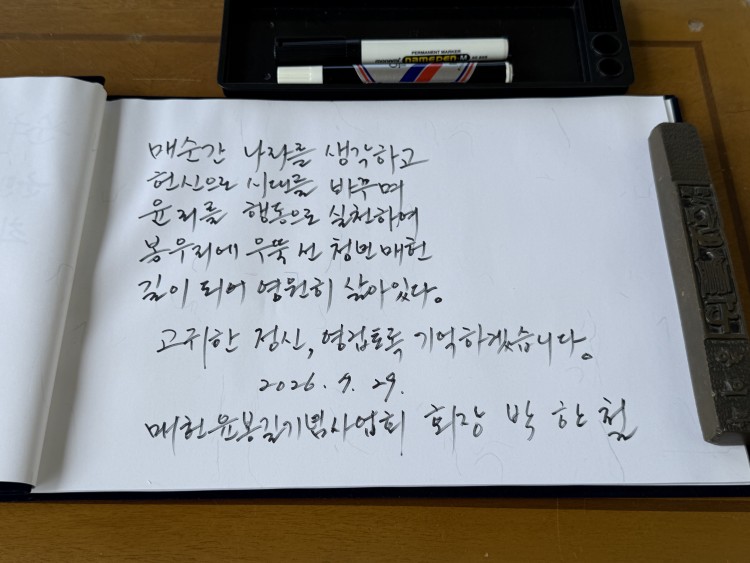 PERMANENT MARKER
NAMEPEN M
매순간 나라를 생각하고
헌신으로 시대를 바꾸며
윤리를 행동으로 실천하여
봉우리에 우뚝 선 청년매헌
길이 되어 영원히 살아있다.
고귀한 정신, 영겁토록 기억하겠습니다.
2026. 9. 29.
매헌윤봉길기념사업회 회장 박 한 철